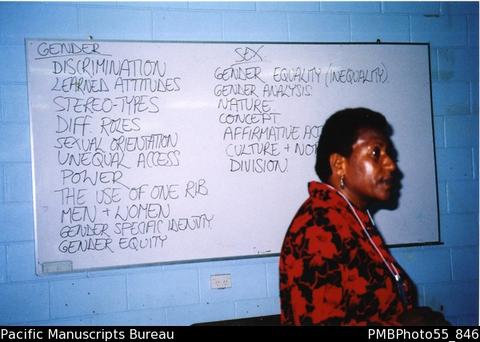 GENDER
DISCRIMINATION
LEARNED ATTITUDES
STEREO-TYPES
DIFF. ROLES
SEXUAL ORIENTATION
UNEQUAL ACCESS
POWER
THE USE OF ONE RIB
MEN + WOMEN
GENDER SPECIFIC IDENTITY
GENDER EQUITY
SEX
GENDER EQUALITY (INEQUALITY)
GENDER ANALYSIS
NATURE
CONCEPT
AFFIRMATIVE
CULTURE +
DIVISION.
Pacific Manuscripts Bureau
PMBPhoto55_846